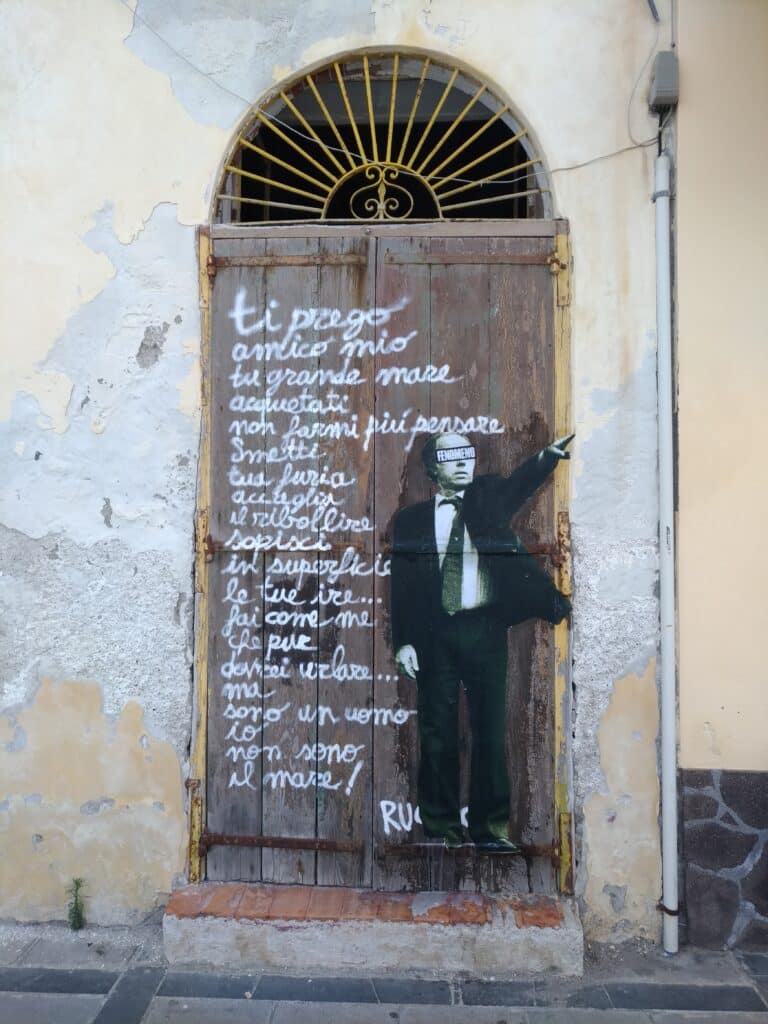 ti prego
amico mio
tu grande mare
acquetati
non farmi piú pensare
Smetti
tua furia
accuglia
il ribollire
sopisci
in superficie
le tue ire...
fai come me
che pur
dovrei urlare...
ma
sono un uomo
io
non sono
il mare!
FENOMENO